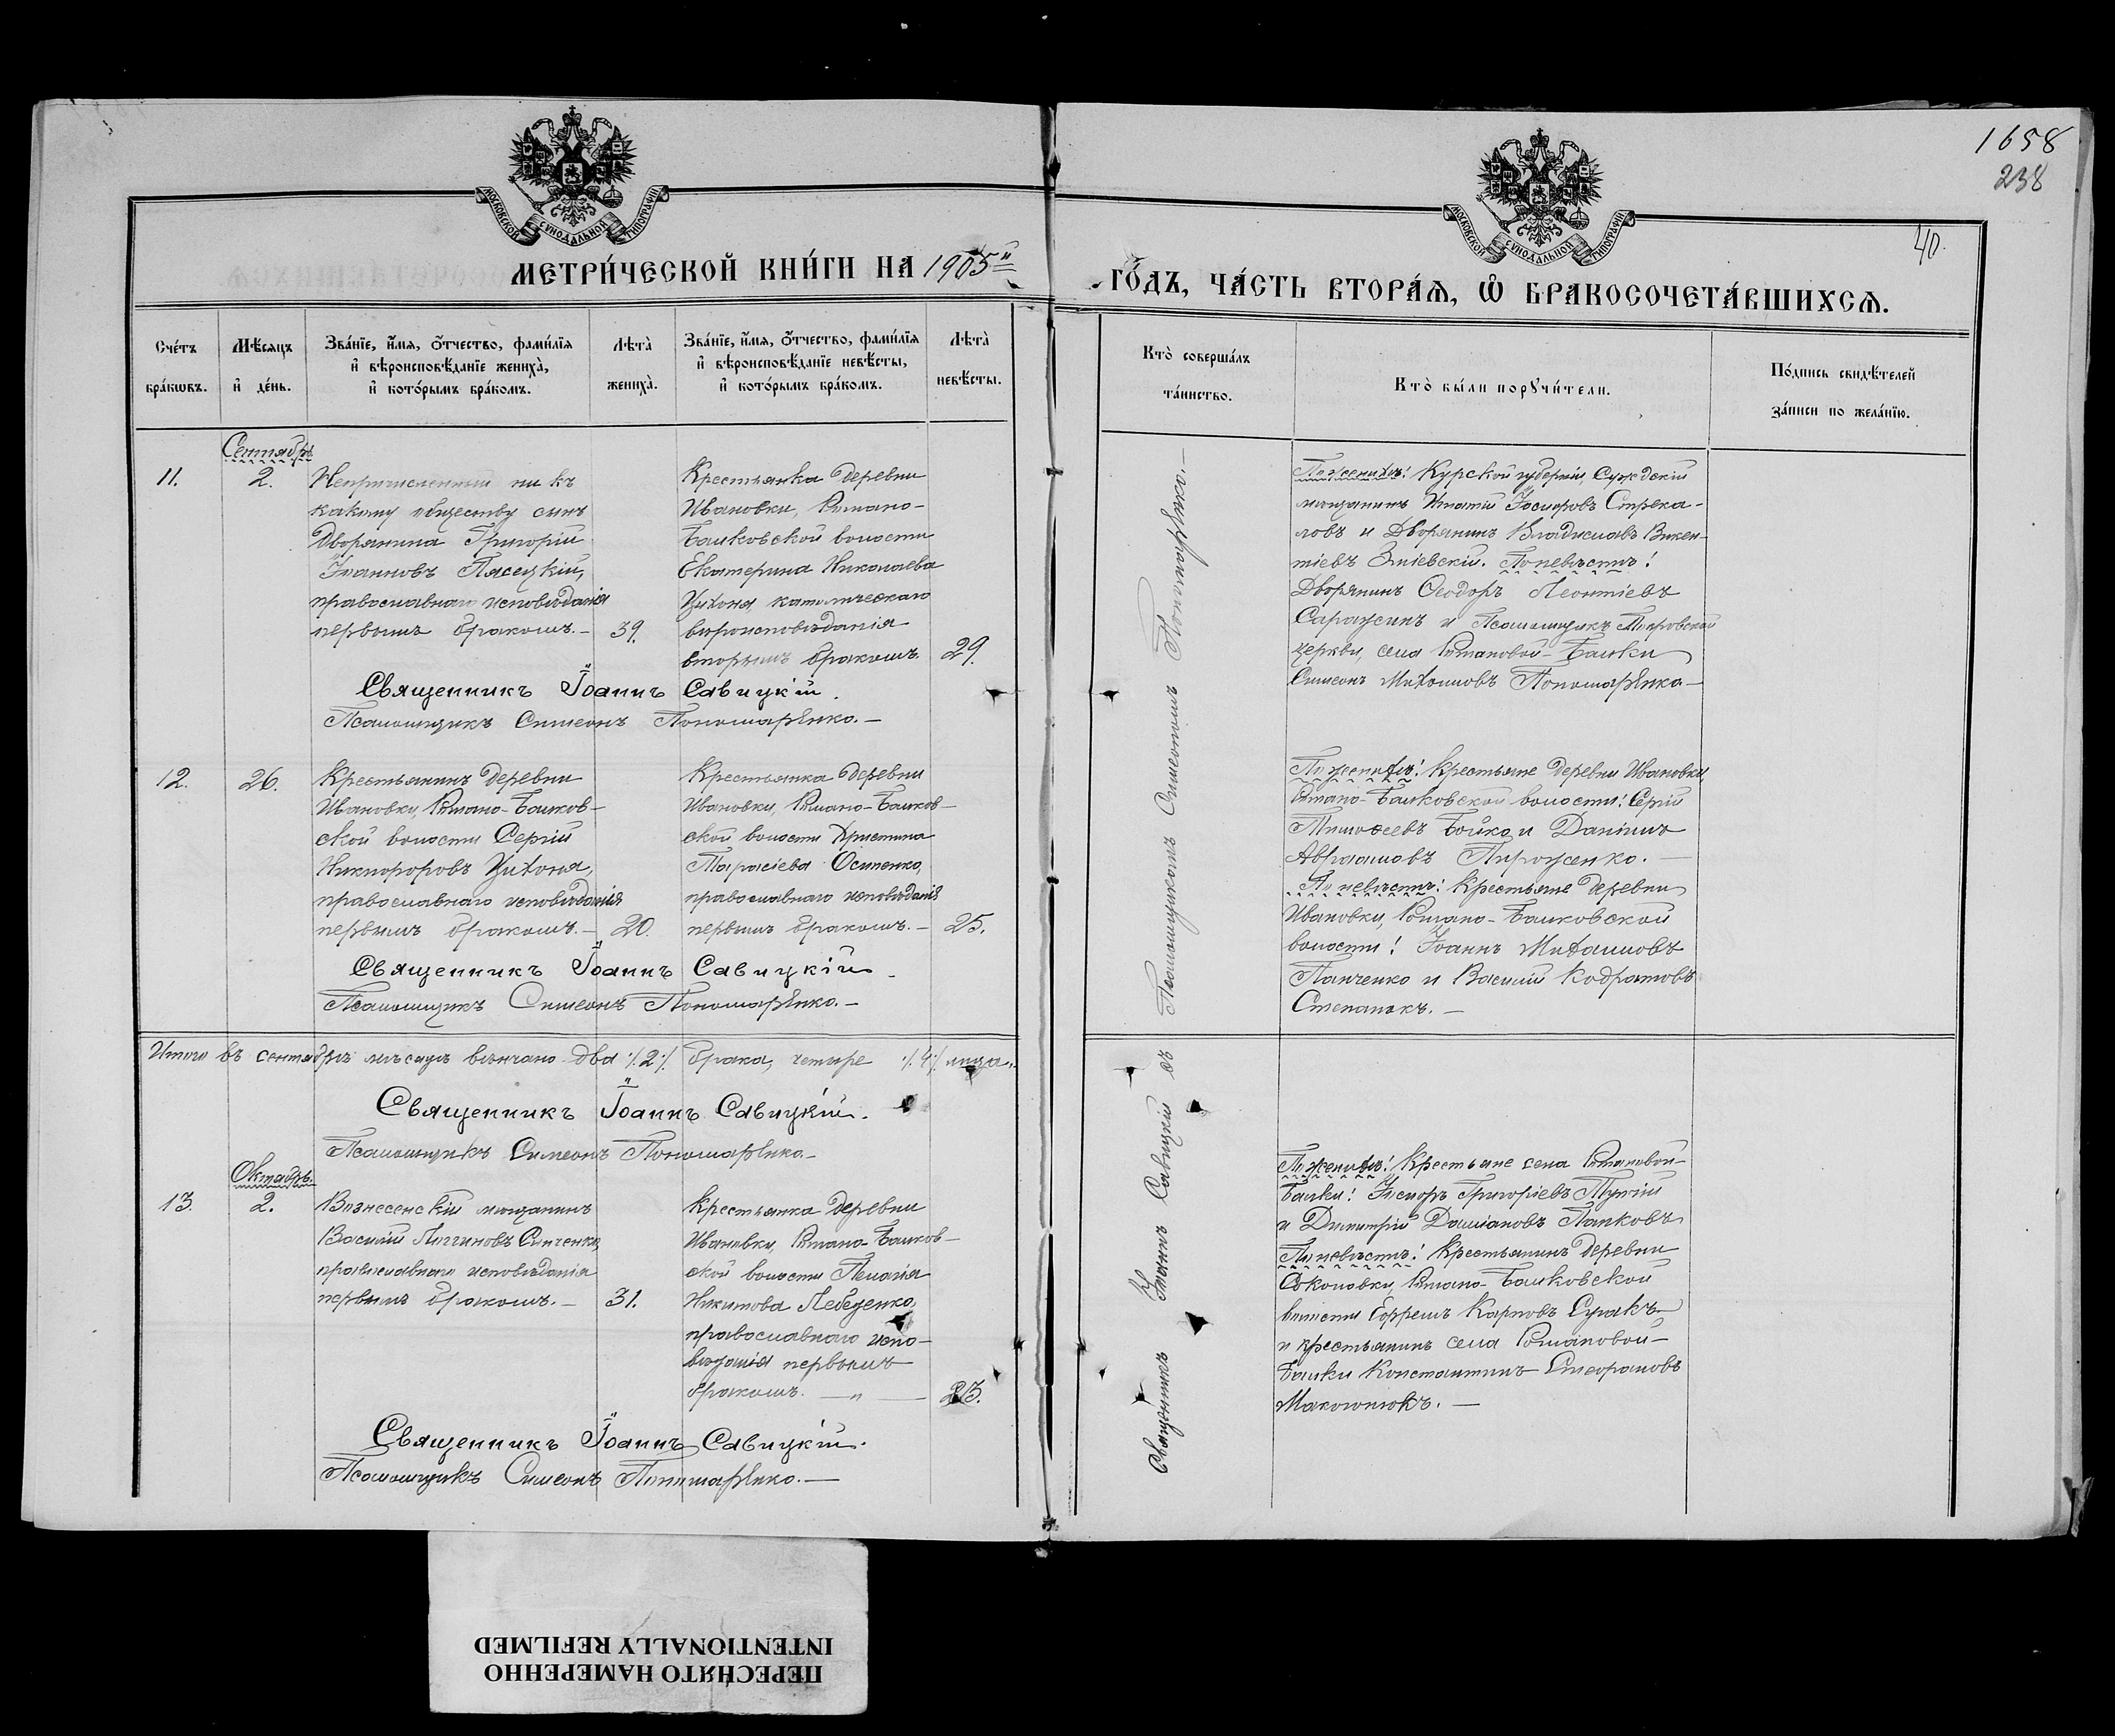 1658
238
40.
МОСКОВСКОЙ СѴНОДАЛЬНОЙ ТИПОГРАФІИ
МОСКОВСКОЙ СѴНОДАЛЬНОЙ ТИПОГРАФІИ
МЕТРИ́ЧЕСКОЙ КНИ́ГИ НА 1905й
ГО́ДЪ, ЧА́СТЬ ВТОРА́Ѧ, Ѽ БРАКОСОЧЕТА́ВШИХСѦ.
Сче́тъ
бра́кѡвъ.
Мѣ́сяцъ
и҆ де́нь.
Зва́нїе, и҆́мя, о҆́тчество, фами́лїя
и҆ вѣроисповѣ́данїе жениха̀,
и҆ кото́рымъ бра́комъ.
Лѣта̀
жениха̀.
Зва́нїе, и҆́мя, о҆́тчество, фами́лїя
и҆ вѣроисповѣ́данїе невѣ́сты,
и҆ кото́рымъ бра́комъ.
Лѣта̀
невѣ́сты.
Кто̀ соверша́лъ
та́инство.
Кто̀ бы́ли порꙋчи́тели.
По́дпись свидѣ́телей
за́писи по жела́нїю.
Сентябрь
11.
2.
Непричисленный ни къ
какому обществу сынъ
Дворянина Григорій
Іоанновъ Пясецкій,
православнаго исповѣданія
первымъ бракомъ.—
39.
Крестьянка деревни
Ивановки, Романо-
Балковской волости
Екатерина Николаева
Цихоня католическаго
вѣроисповѣданія
вторымъ бракомъ.
29.
Священникъ Іоаннъ Савицкій.
Псаломщикъ Симеонъ Пономарѣнко.—
По женихѣ: Курской губерніи, Суждскій
мѣщанинъ Игнатій Іосифовъ Стрека-
ловъ и Дворянинъ Владиславъ Викен-
тіевъ Зміевскій. По невѣстѣ:
Дворянинъ Ѳеодоръ Леонтіевъ
Саражинъ и Псаломщикъ Покровской
церкви, села Романовой-Балки
Симеонъ Михаиловъ Пономарѣнко—
12.
26.
Крестьянинъ деревни
Ивановки, Романо-Балков-
ской волости Сергій
Никифоровъ Цихоня,
православнаго исповѣданія
первымъ бракомъ.—
20.
Крестьянка деревни
Ивановки, Романо-Балков-
ской волости Христина
Тарасіева Осипенко,
православнаго исповѣданія
первымъ бракомъ.—
25.
Священникъ Іоаннъ Савицкій.
Псаломщикъ Симеонъ Пономарѣнко.—
По женихѣ: Крестьяне деревни Ивановки,
Романо-Балковской волости: Сергій
Тимоѳеевъ Бойко и Даніилъ
Авраамовъ Пироженко.—
По невѣстѣ: Крестьяне деревни
Ивановки, Романо-Балковской
волости: Іоаннъ Михаиловъ
Панченко и Василій Кодратовъ
Степанюкъ.—
Итого въ сентябрѣ мѣсяцѣ вѣнчано два ·/.2·/. брака, четыре ·/.4·/. лица.
Священникъ Іоаннъ Савицкій.
Псаломщикъ Симеонъ Пономарѣнко.—
Октябрь.
13.
2.
Вознесенскій мѣщанинъ
Василій Логгиновъ
православнаго исповѣданія
первымъ бракомъ.—
31.
Крестьянка деревни
Ивановки, Романо-Балков-
ской волости Пелагія
Никитова Лебеденко,
православнаго испо-
вѣданія первымъ
бракомъ.—„—
23.
Священникъ Іоаннъ Савицкій.
Псаломщикъ Симеонъ Пономарѣнко.—
По женихѣ: Крестьяне села Романовой-
Балки: Григоріевъ
и Димитрій Даміановъ Папковъ
По невѣстѣ: Крестьянинъ деревни
Соколовки, Романо-Балковской
волости Ефремъ Карповъ
и крестьянинъ села Романовой-
Балки Константинъ Стефановъ
Маковнюкъ.—
Священникъ Іоаннъ Савицкій съ Псаломщикомъ Симеономъ Пономарѣнко.—
ПЕРЕСНЯТО НАМЕРЕННО
INTENTIONALLY REFILMED